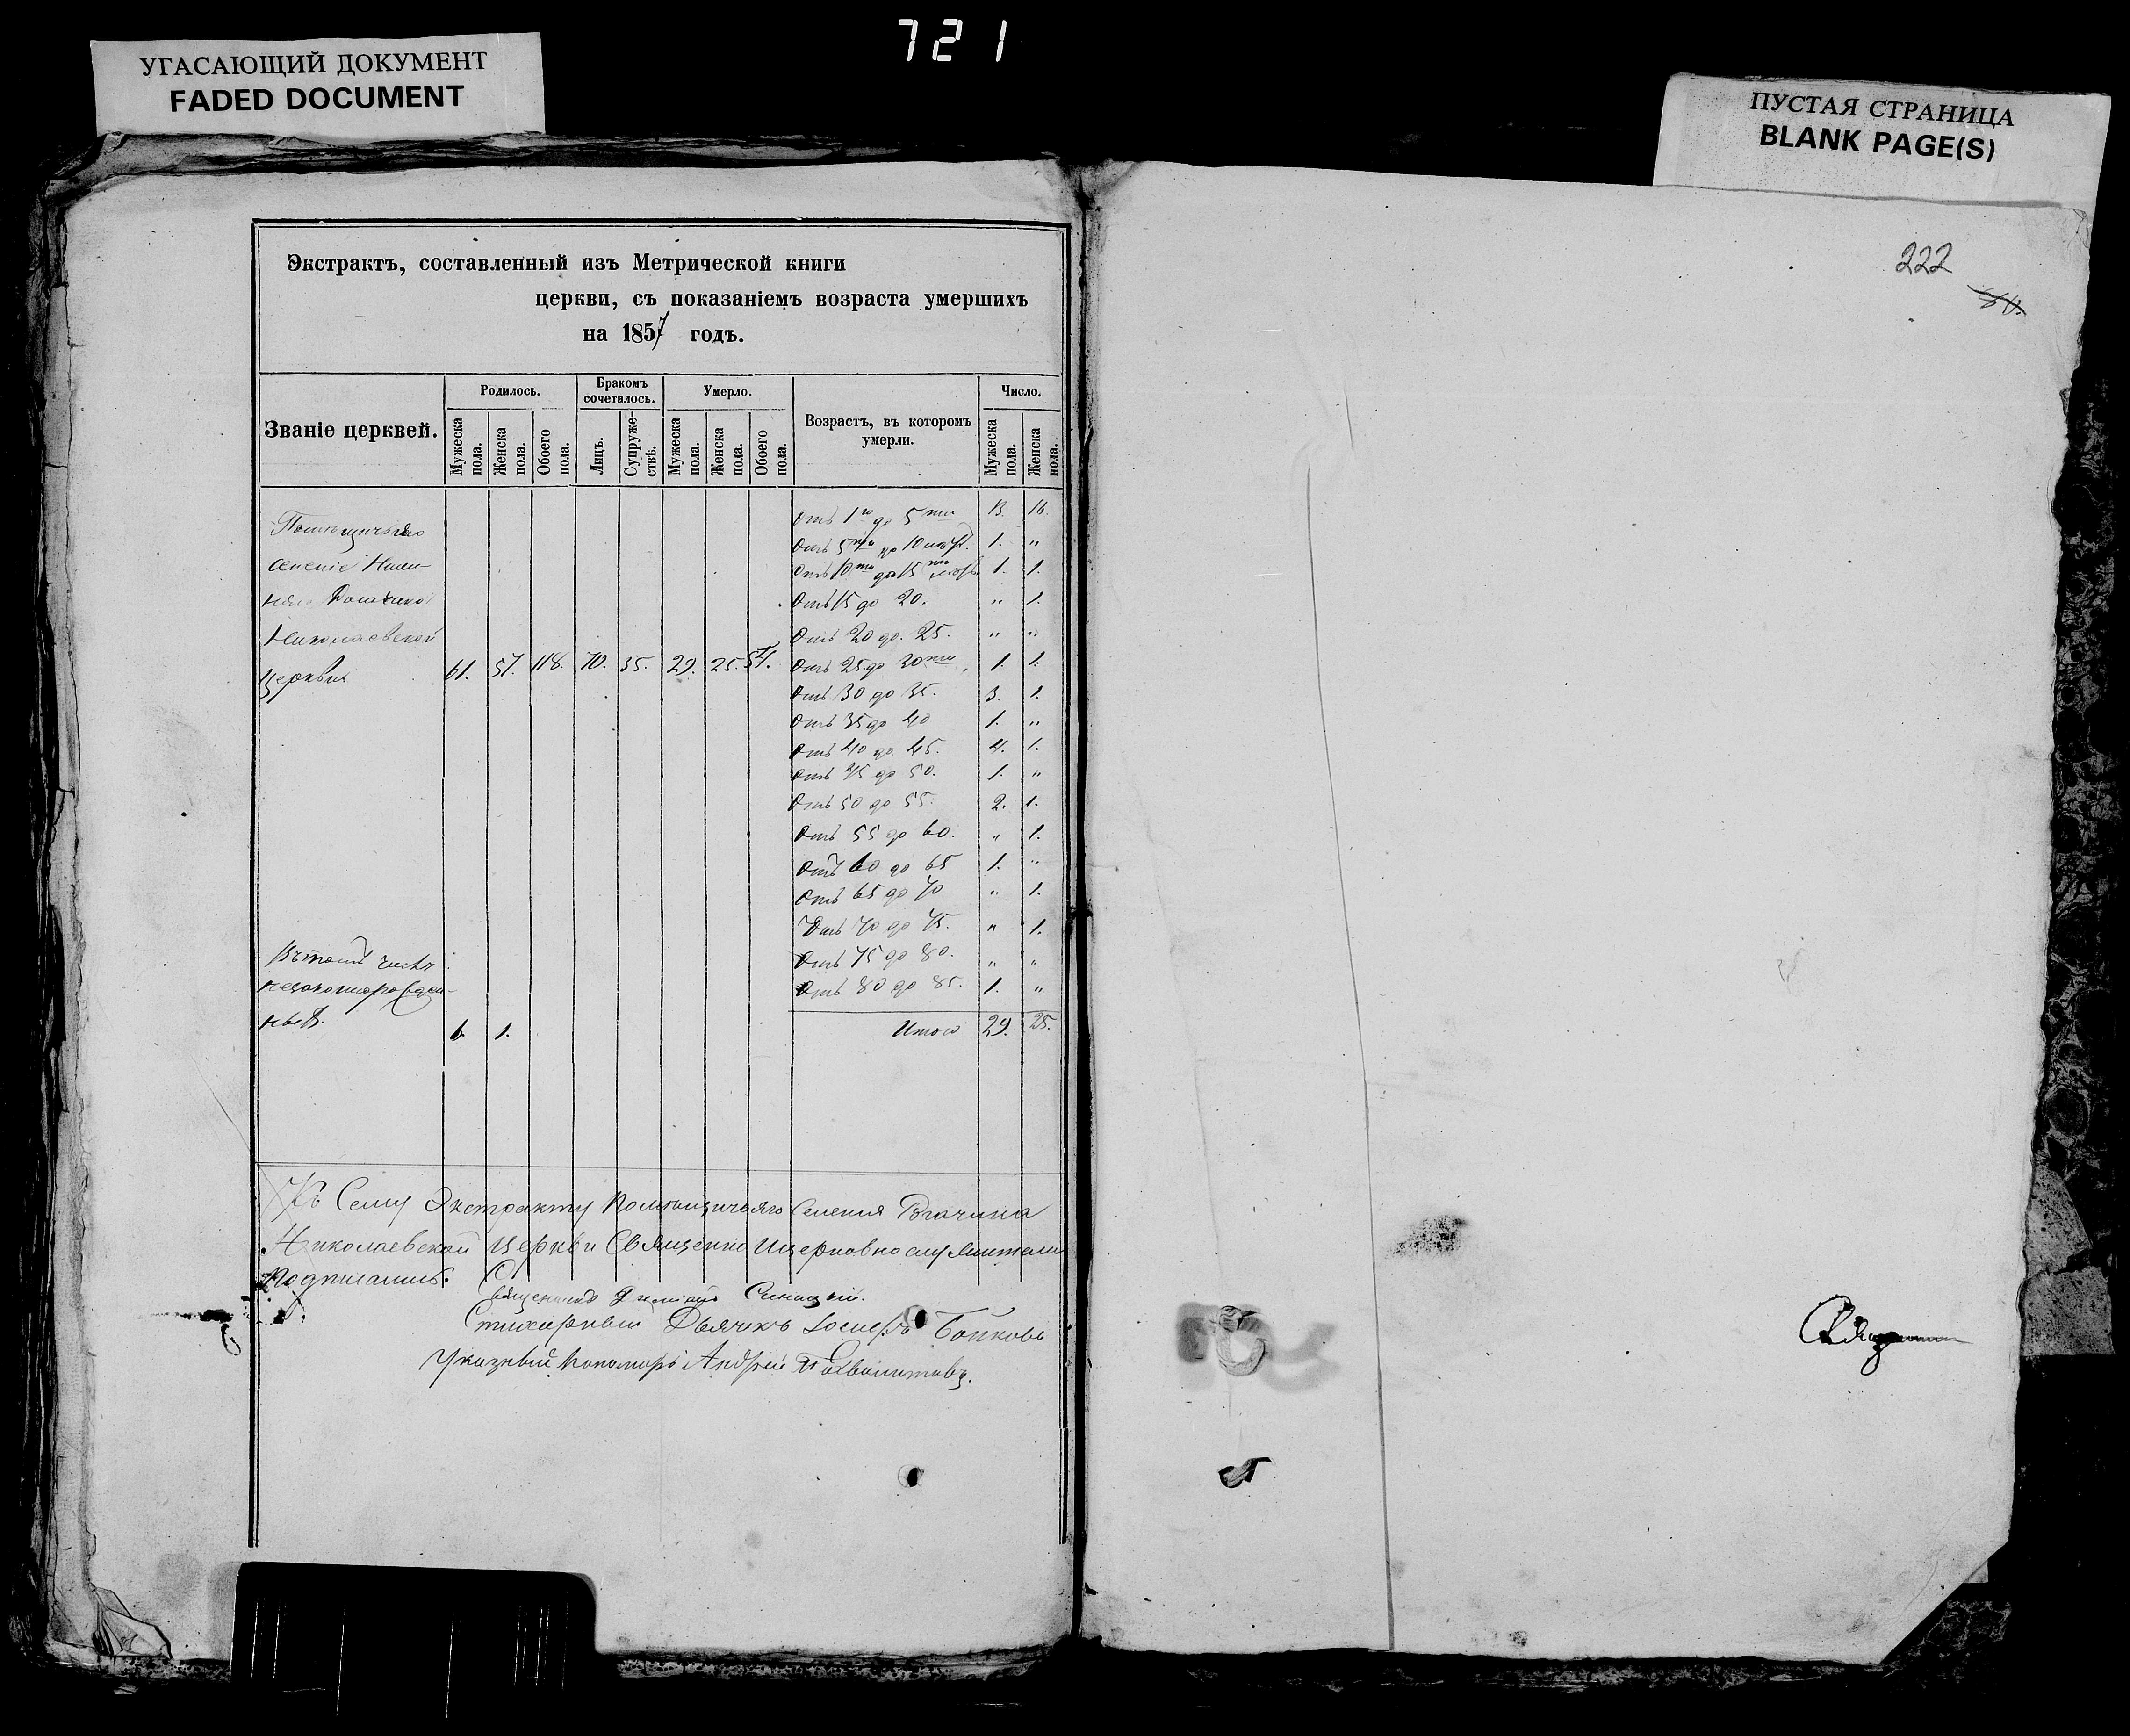 721
УГАСАЮЩИЙ ДОКУМЕНТ
FADED DOCUMENT
ПУСТАЯ СТРАНИЦА
BLANK PAGE(S)
222
Экстрактъ, составленный изъ Метрической книги
церкви, съ показаніемъ возраста умершихъ
на 1857 годъ.
Званіе церквей.
Родилось.
Бракомъ сочеталось.
Умерло.
Возрастъ, въ которомъ умерли.
Число.
Мужеска пола.
Женска пола.
Обоего пола.
Лицъ.
Супружествъ.
Мужеска пола.
Женска пола.
Обоего пола.
Мужеска пола.
Женска пола.
Отъ 1го до 5ти 13. 16.
Отъ 5ти до 10 1. "
Отъ 10ти до 15ти 1. 1.
Отъ 15 до 20. " 1.
Николаевской
Отъ 20 до 25. " "
Церквы 61. 57. 118. 70. 35. 29. 25. 54. Отъ 25 до 30ти 1. 1.
Отъ 30 до 35. 3. 1.
Отъ 35 до 40 1. "
Отъ 40 до 45. 4. 1.
Отъ 45 до 50. 1. "
Отъ 50 до 55. 2. 1.
Отъ 55 до 60. " 1.
Отъ 60 до 65 1. "
Отъ 65 до 70 " 1.
Отъ 70 до 75. " 1.
Въ томъ числѣ
Отъ 75 до 80. " "
незаконорожден-
Отъ 80 до 85. 1. "
ныхъ. 6. 1. Итого 29. 25.
Къ Сему Экстракту Помѣщичьяго Селения
Николаевской Церкви Священно Ицерковнослужители
подписались.
Священникъ
Стихарный Дьячекъ Іосифъ Бойковъ
Указный Пономарь Андрей